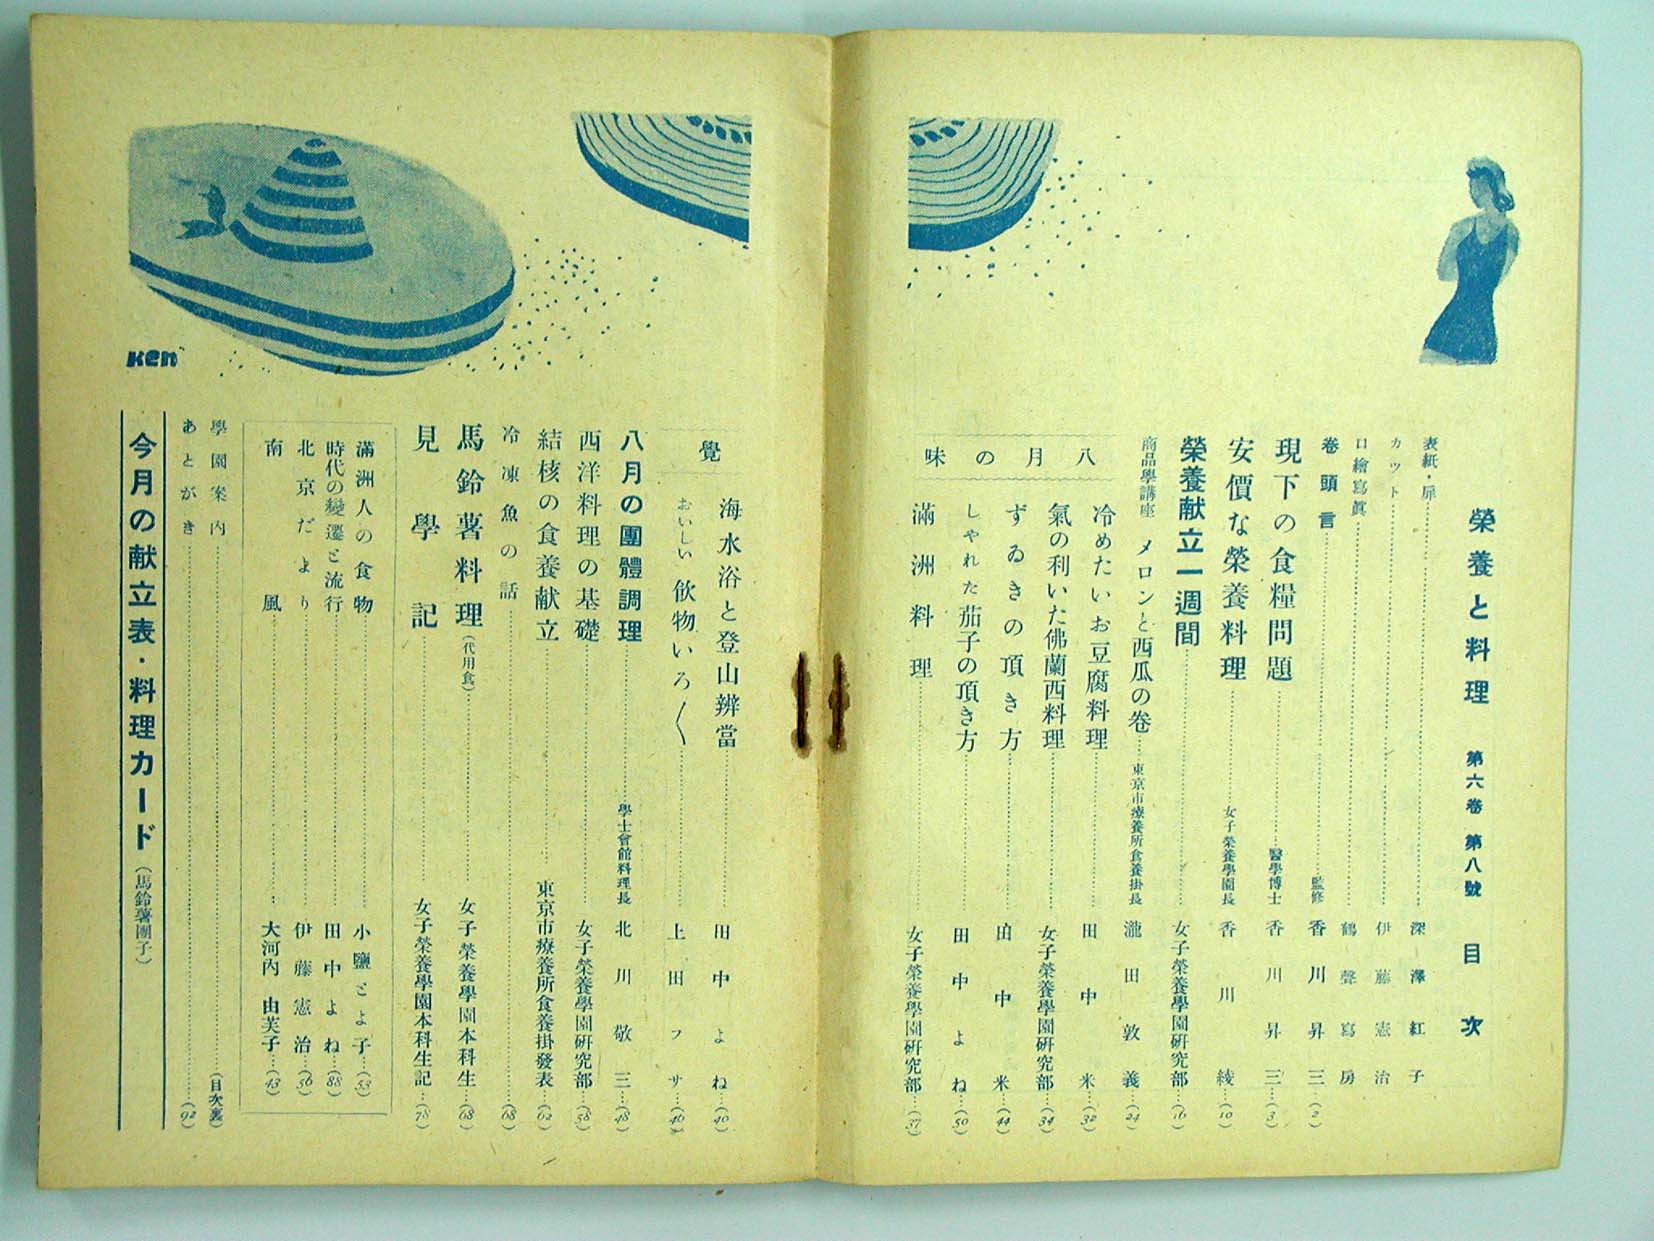 榮養と料理 第六卷 第八號 目次
表紙・扉 深澤紅子
カツト 伊藤憲治
口繪寫眞 鶴聲寫房
卷頭言 監修 香川昇三 (2)
現下の食糧問題 醫學博士 香川昇三 (3)
安價な榮養料理 女子榮養學園長 香川綾 (10)
榮養献立一週間 女子榮養學園硏究部 (16)
商品學講座 メロンと西瓜の卷 東京市療養所食養掛長 瀧田敦義 (24)
八月の味覺
冷めたいお豆腐料理 田中米 (32)
氣の利いた佛蘭西料理 女子榮養學園硏究部 (34)
ずゐきの頂き方 田中米 (44)
しやれた茄子の頂き方 田中よね (50)
滿洲料理 女子榮養學園硏究部 (37)
海水浴と登山辨當 田中よね (40)
おいしい飲物いろ〱 上田フサ (46)
八月の團體調理 學士會館料理長 北川敬三 (48)
西洋料理の基礎 女子榮養學園硏究部 (58)
結核の食養献立 東京市療養所食養掛發表 (62)
冷凍魚の話 (68)
馬鈴薯料理(代用食) 女子榮養學園本科生 (68)
見學記 女子榮養學園本科生記 (78)
滿洲人の食物 小鹽とよ子 (53)
時代の變遷と流行 田中よね (88)
北京だより 伊藤憲治 (56)
南風 大河內由芙子 (43)
學園案內 (目次裏)
あとがき (92)
今月の献立表・料理カード(馬鈴薯團子)
Ken